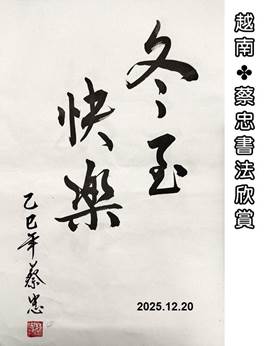 越南✤蔡忠書法欣賞
冬至
快樂
乙巳年蔡忠
2025.12.20